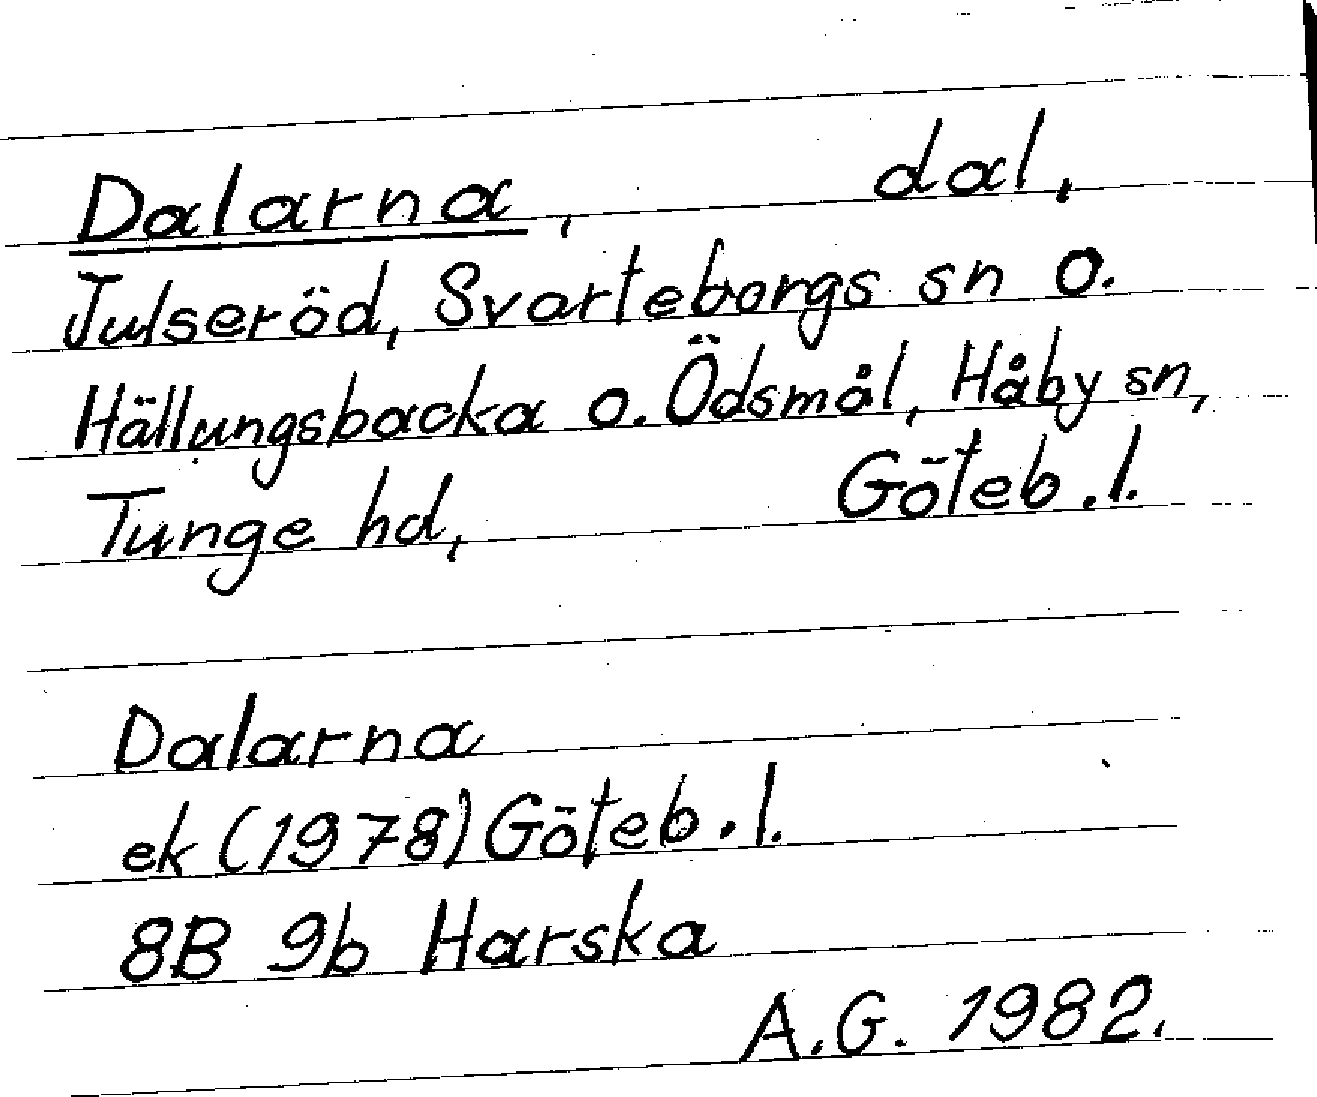 Dalarna, dal,
Julseröd, Svarteborgs sn o.
Hällungsbacka o. Ödsmål, Håby sn,
Tunge hd, Göteb.l.
Dalarna
ek (1978) Göteb.l.
8B 9b Harska
A.G. 1982.